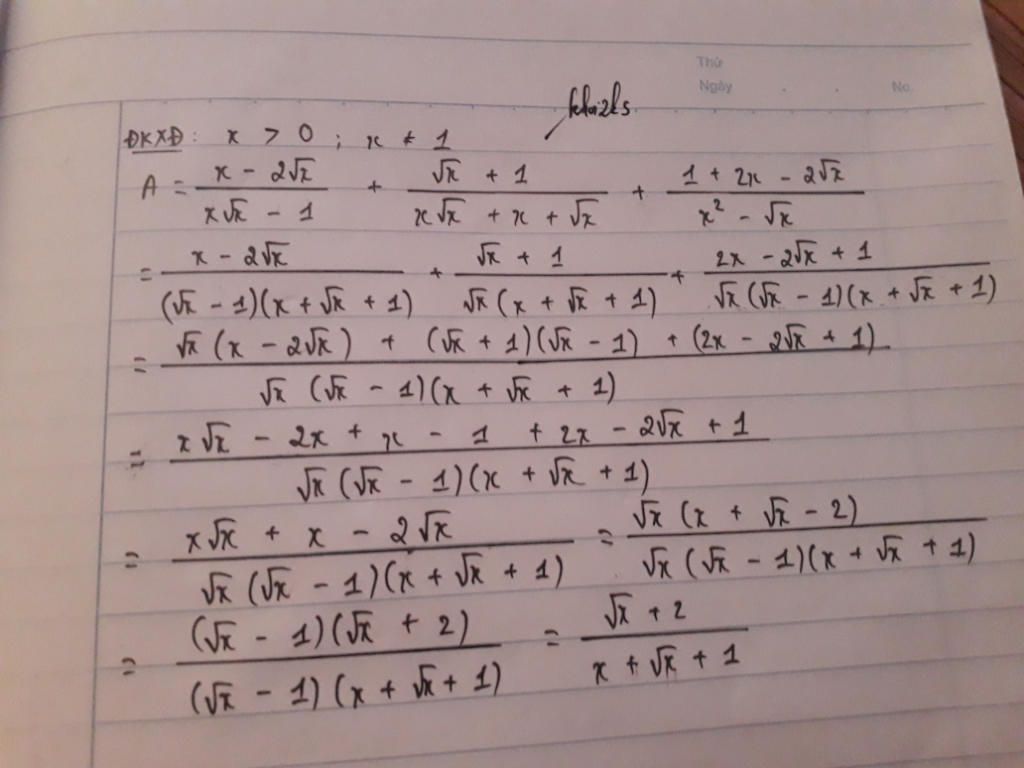 Thứ
Ngày . . No.
khaizks
ĐKXĐ: x > 0 ; x ≠ 1
A = (x - 2√x)/(x√x - 1) + (√x + 1)/(x√x + x + √x) + (1 + 2x - 2√x)/(x² - √x)
= (x - 2√x)/((√x - 1)(x + √x + 1)) + (√x + 1)/(√x (x + √x + 1)) + (2x - 2√x + 1)/(√x (√x - 1)(x + √x + 1))
= (√x (x - 2√x) + (√x + 1)(√x - 1) + (2x - 2√x + 1))/(√x (√x - 1)(x + √x + 1))
= (x√x - 2x + x - 1 + 2x - 2√x + 1)/(√x (√x - 1)(x + √x + 1))
= (x√x + x - 2√x)/(√x (√x - 1)(x + √x + 1)) = (√x (x + √x - 2))/(√x (√x - 1)(x + √x + 1))
= ((√x - 1)(√x + 2))/((√x - 1)(x + √x + 1)) = (√x + 2)/(x + √x + 1)